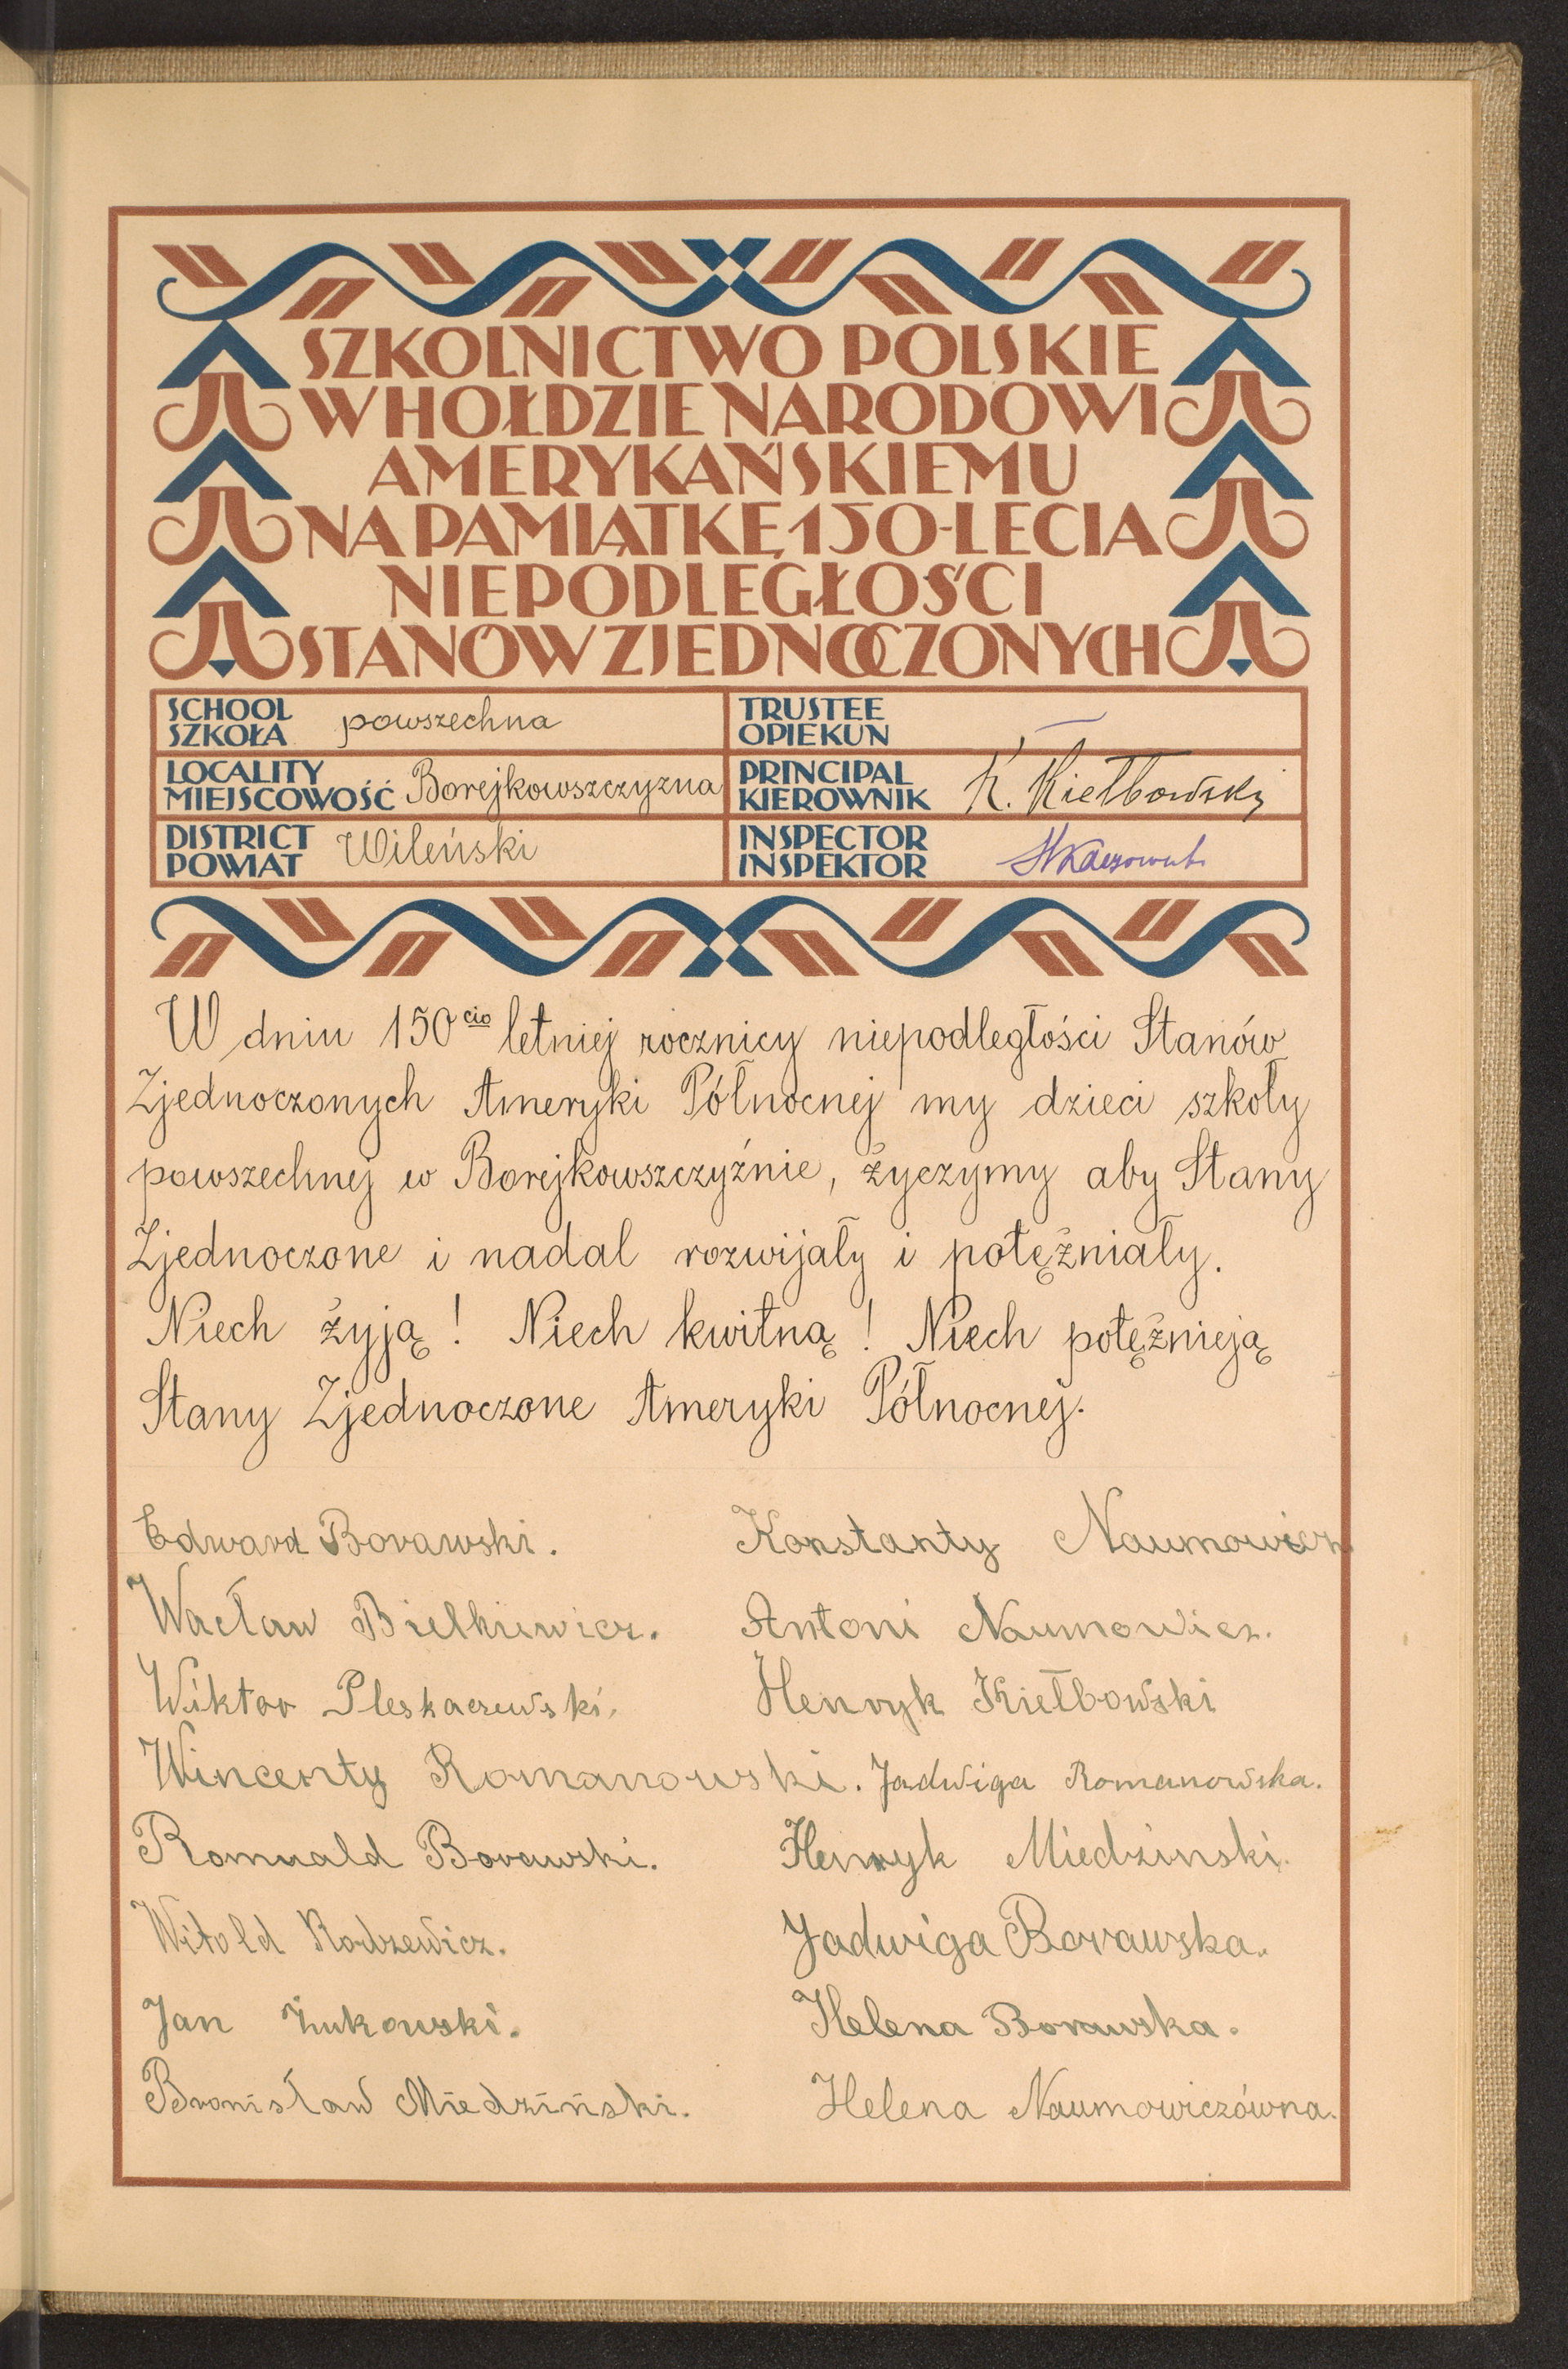 SZKOLNICTWO POLSKIE
W HOŁDZIE NARODOWI
AMERYKAŃSKIEMU
NA PAMIĄTKĘ 150-LECIA
NIEPODLEGŁOŚCI
STANÓW ZJEDNOCZONYCH
SCHOOL
SZKOŁA powszechna
TRUSTEE
OPIEKUN —
LOCALITY
MIEJSCOWOŚĆ Borejkowszczyzna
PRINCIPAL
KIEROWNIK K. Kiełbowski
DISTRICT
POWIAT Wileński
INSPECTOR
INSPEKTOR
W dniu 150cio letniej rocznicy niepodległości Stanów
Zjednoczonych Ameryki Północnej my dzieci szkoły
powszechnej w Borejkowszczyźnie, życzymy aby Stany
Zjednoczone i nadal rozwijały i potężniały.
Niech żyją! Niech kwitną! Niech potężnieją
Stany Zjednoczone Ameryki Północnej.
Edward Borawski. Konstanty Naumowicz
Wacław Bielkiewicz. Antoni Naumowicz.
Wiktor Pleskaczewski. Henryk Kiełbowski
Wincenty Romanowski. Jadwiga Romanowska.
Romuald Borawski. Henryk Miedzinski.
Witold Rodzewicz. Jadwiga Borawska.
Jan Żukowski. Helena Borawska.
Bronisław Miedziński. Helena Naumowiczówna.